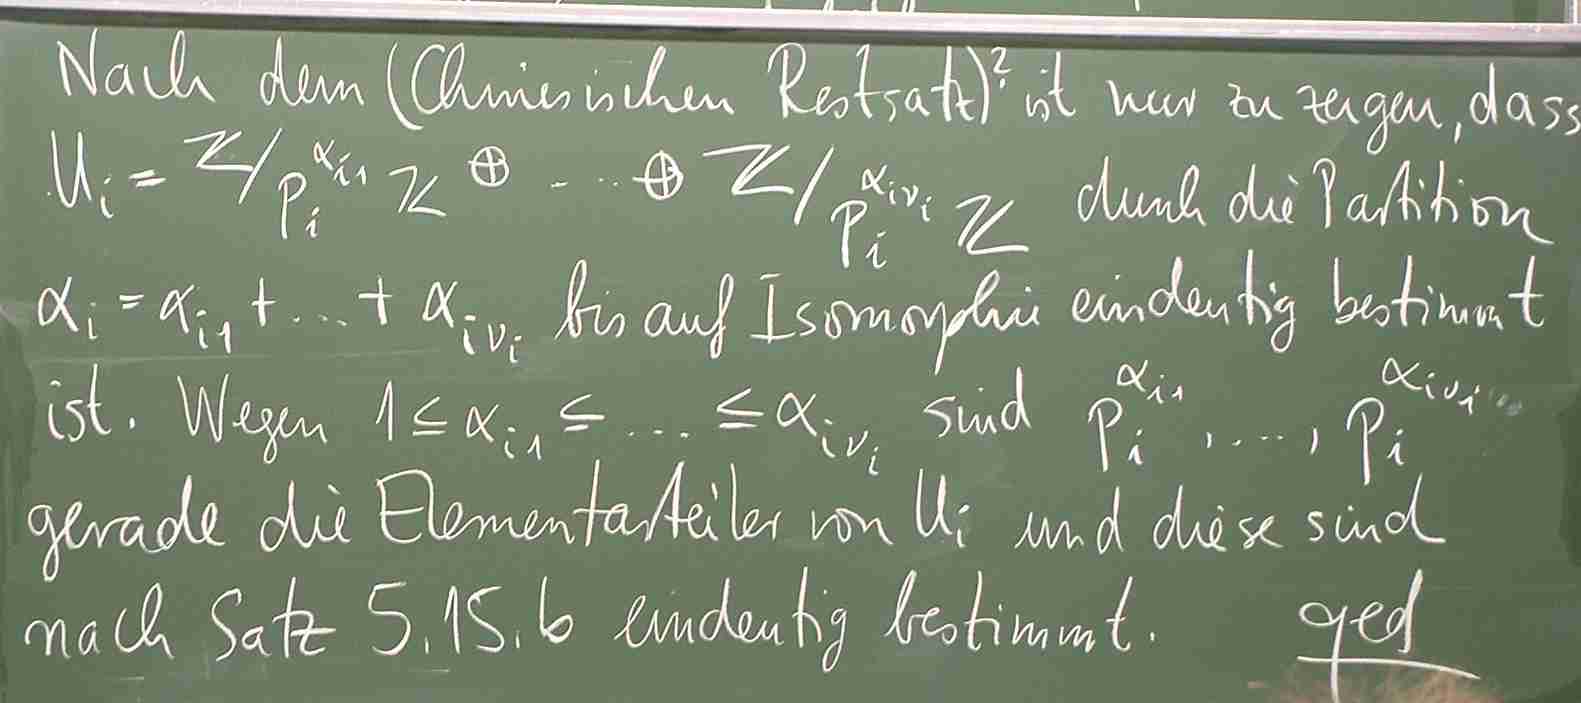 Nach dem (Chinesischen Restsatz)? ist nur zu zeigen, dass
U_i = ℤ/p_i^{α_{i1}}ℤ ⊕ ... ⊕ ℤ/p_i^{α_{iν_i}}ℤ durch die Partition
α_i = α_{i1} + ... + α_{iν_i} bis auf Isomorphie eindeutig bestimmt
ist. Wegen 1 ≤ α_{i1} ≤ ... ≤ α_{iν_i} sind p_i^{α_{i1}}, ..., p_i^{α_{iν_i}}
gerade die Elementarteiler von U_i und diese sind
nach Satz 5.15.b eindeutig bestimmt. qed